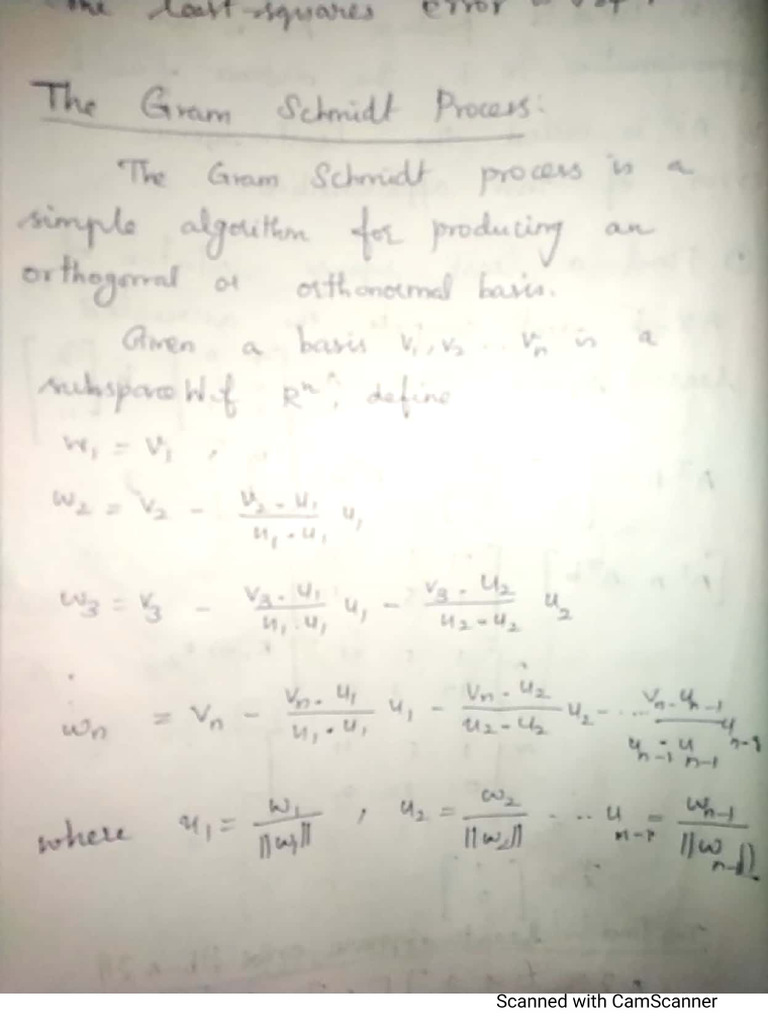 the least-squares error
The Gram Schmidt Process:
The Gram Schmidt process is a
simple algorithm for producing an
orthogonal or orthonormal basis.
Given a basis v₁, v₂ ... vₙ in a
subspace W of Rⁿ, define
w₁ = v₁,
w₂ = v₂ - (v₂ · u₁)/(u₁ · u₁) u₁
w₃ = v₃ - (v₃ · u₁)/(u₁ · u₁) u₁ - (v₃ · u₂)/(u₂ · u₂) u₂
wₙ = vₙ - (vₙ · u₁)/(u₁ · u₁) u₁ - (vₙ · u₂)/(u₂ · u₂) u₂ - ... (vₙ · uₙ₋₁)/(uₙ₋₁ · uₙ₋₁) uₙ₋₁
where u₁ = w₁/||w₁||, u₂ = w₂/||w₂|| ... uₙ₋₁ = wₙ₋₁/||wₙ₋₁||
Scanned with CamScanner